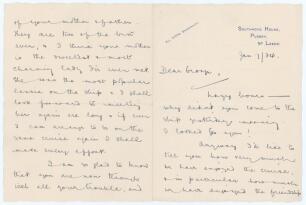 of your mother & father.
They are two of the best
ever, & I think your mother
is the sweetest & most
charming lady I've ever met
She was the most popular
on the ship & I shall
look forward to meeting
her again ere long & if ever
I can arrange to be on the
same cruise again I shall
make every effort.
I am so glad to know
that you are now through
with all your trouble, and
Southwood House,
St
Jan 7/34.
Dear George,
why didn't you come to the
ship yesterday morning
I looked for you!
Anyway I'd like to
tell you how very much
we have enjoyed the cruise,
& in particular how much
we have enjoyed the friendship